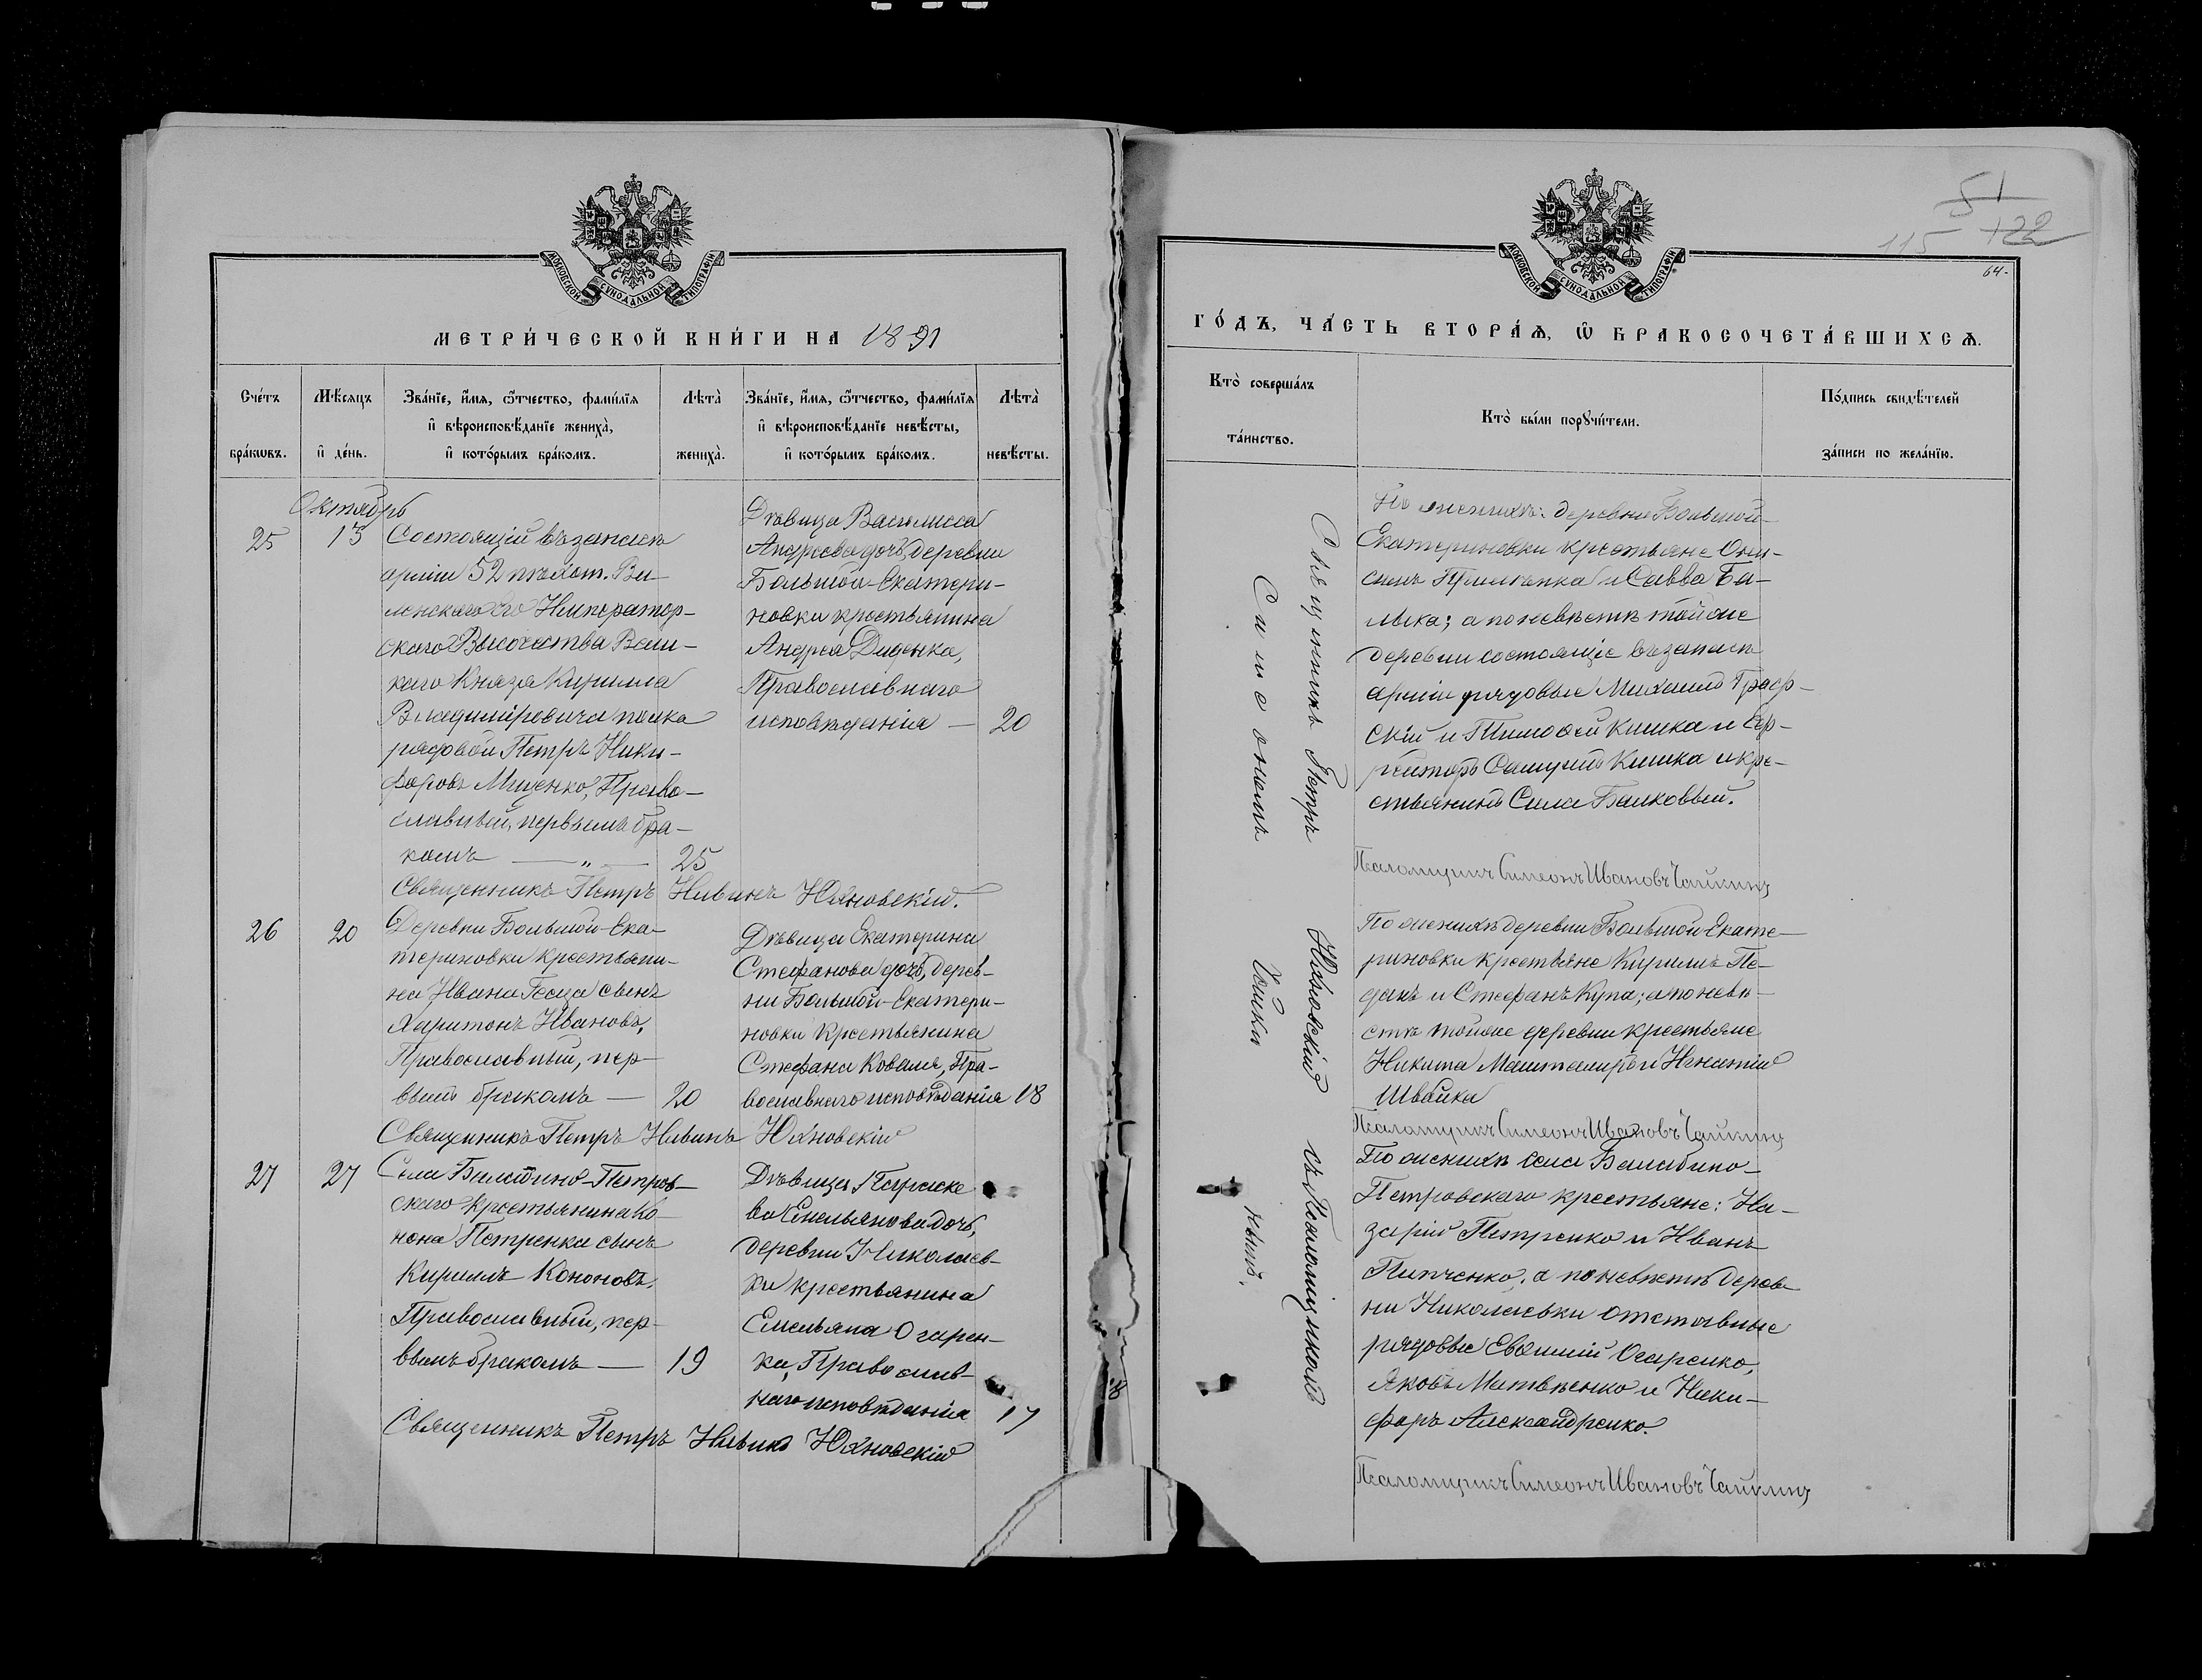 МОСКОВСКОЙ СѴНОДАЛЬНОЙ ТИПОГРАФІИ
МЕТРИ́ЧЕСКОЙ КНИ́ГИ НА 1891
Сче́тъ бра́кѡвъ.
Мѣ́сяцъ и҆ де́нь.
Зва́нїе, и҆́мя, ѻ҆́тчество, фами́лїя
и҆ вѣроисповѣ́данїе жениха̀,
и҆ кото́рымъ бра́комъ.
Лѣта̀ жениха̀.
Зва́нїе, и҆́мя, ѻ҆́тчество, фами́лїя
и҆ вѣроисповѣ́данїе невѣ́сты,
и҆ кото́рымъ бра́комъ.
Лѣта̀ невѣ́сты.
Октябрь
25
13
Состоящій въ запасѣ
арміи 52 пѣхот. Ви-
ленскаго Его Император-
скаго Высочества Вели-
каго Князя Кирилла
Владиміровича полка
рядовой Петръ Ники-
форовъ Мищенко, Право-
славный, первымъ бра-
комъ — „ — 25
Дѣвица Василисса
Андреева дочь, деревни
Большой-Екатери-
новки крестьянина
Андрея Диденка,
Православнаго
исповѣданія — 20
Священникъ Петръ Юановскій.
26
20
Деревни Большой-Ека-
териновки крестьяни-
на Ивана сынъ
Харитонъ Ивановъ,
Православный, пер-
вымъ бракомъ — 20
Дѣвица Екатерина
Стефанова дочь, дерев-
ни Большой-Екатери-
новки крестьянина
Стефана Коваля, Пра-
вославнаго исповѣданія 18
Священникъ Петръ Юановскій
27
27
Села Балабино-Петров-
скаго крестьянина Ко-
нона Петренка сынъ
Кириллъ Кононовъ,
Православный, пер-
вымъ бракомъ — 19
Дѣвица Параске-
ва Емельянова дочь,
деревни Николаев-
ки крестьянина
Емельяна Огарен-
ка, Православ-
наго исповѣданія 17
Священникъ Петръ Юановскій
51
115 122
64-
МОСКОВСКОЙ СѴНОДАЛЬНОЙ ТИПОГРАФІИ
ГО́ДЪ, ЧА́СТЬ ВТОРА́Ѧ, Ѽ БРАКОСОЧЕТА́ВШИХСѦ.
Кто̀ соверша́лъ
та́инство.
Кто̀ бы́ли порꙋчи́тели.
По́дпись свидѣ́телей
за́писи по жела́нїю.
Священникъ Петръ Юановскій съ Псаломщикомъ
Симеономъ
По женихѣ: деревни Большой-
Екатериновки крестьяне Они-
симъ и Савва Ба-
лыка; а по невѣстѣ той же
деревни состоящіе въ запасѣ
арміи рядовые Михаилъ
скій и Тимоѳей Кишка и еф-
рейторъ Кишка и кре-
стьянинъ Сила Балковый.
Псаломщикъ Симеонъ Ивановъ Чайкинъ
По женихѣ деревни Большой-Екате-
риновки крестьяне Кириллъ Пе-
данъ и Стефанъ Купа; а по невѣ-
стѣ той же деревни крестьяне
Никита и Игнатій
Швайка
Псаломщикъ Симеонъ Ивановъ Чайкинъ
По женихѣ села Балабино-
Петровскаго крестьяне: На-
зарій Петренко и Иванъ
Пипченко, а по невѣстѣ дерев-
ни Николаевки отставные
рядовые Евѳимій Огаренко,
Яковъ Матвѣенко и Ники-
форъ Александренко.
Псаломщикъ Симеонъ Ивановъ Чайкинъ